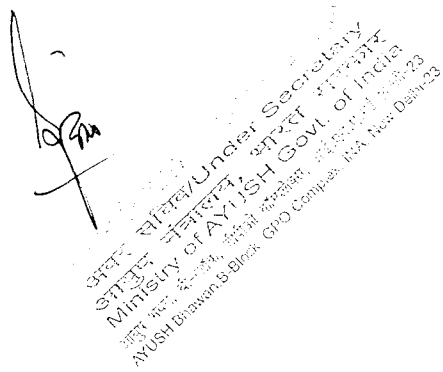 अवर सचिव/Under Secretary
आयुष मंत्रालय, भारत सरकार
Ministry of AYUSH Govt. of India
आयुष भवन, बी-ब्लॉक, जीपीओ कॉम्प्लेक्स, -23
AYUSH Bhawan, B-Block, GPO Complex, INA, New Delhi-23